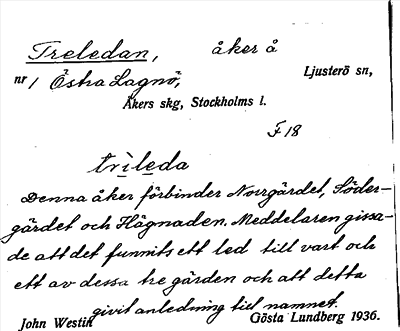 Treledan, åker å
nr 1 Östra Lagnö, Ljusterö sn,
Åkers skg, Stockholms l.
F 18
trileda
Denna åker förbinder Norrgärdet, Söder-
gärdet och Hägnaden. Meddelaren gissa-
de att det funnits ett led till vart och
ett av dessa tre gärden och att detta
givit anledning till namnet.
John Westin Gösta Lundberg 1936.